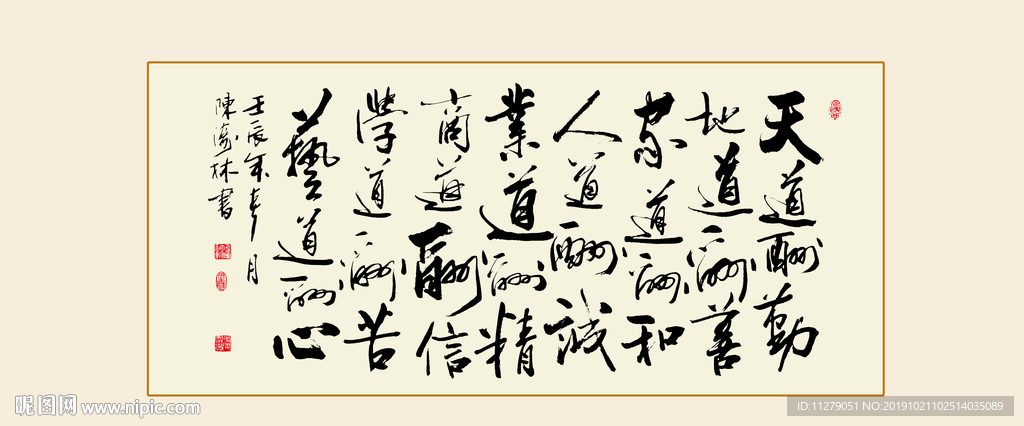 天道酬勤
地道酬善
家道酬和
人道酬誠
業道酬精
商道酬信
學道酬苦
藝道酬心
壬辰年春月
陳濤林書
昵图网 www.nipic.com
ID:11279051 NO:20191021102514035089